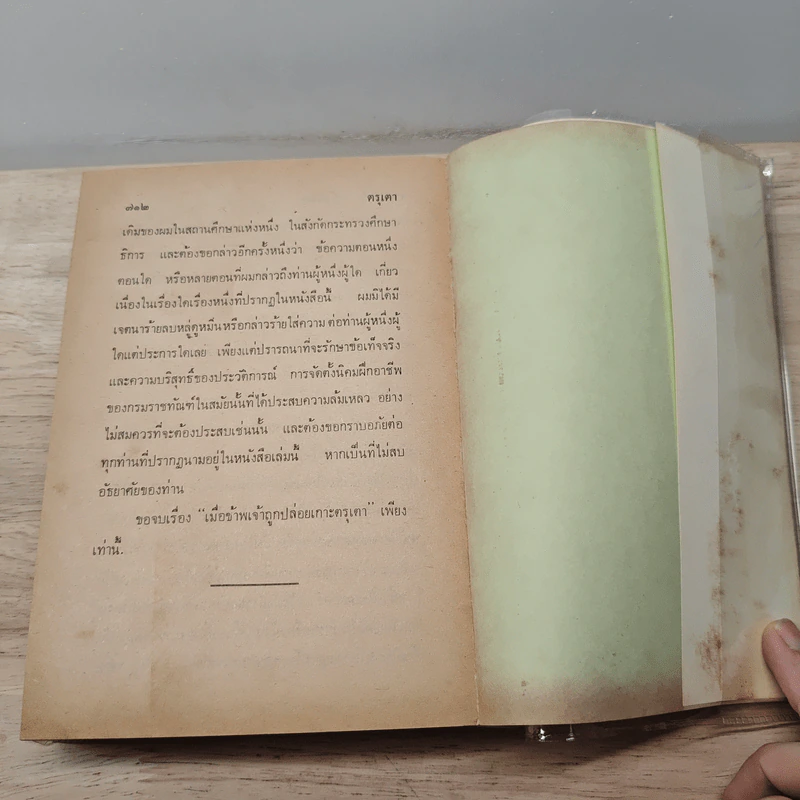 ๗๑๒ ตรุเตา
เดิมของผมในสถานศึกษาแห่งหนึ่ง ในสังกัดกระทรวงศึกษา
ธิการ และต้องขอกล่าวอีกครั้งหนึ่งว่า ข้อความตอนหนึ่ง
ตอนใด หรือหลายตอนที่ผมกล่าวถึงท่านผู้หนึ่งผู้ใด เกี่ยว
เนื่องในเรื่องใดเรื่องหนึ่งที่ปรากฏในหนังสือนี้ ผมมิได้มี
เจตนาร้ายลบหลู่ดูหมิ่นหรือกล่าวร้ายใส่ความ ต่อท่านผู้หนึ่งผู้
ใดแต่ประการใดเลย เพียงแต่ปรารถนาที่จะรักษาข้อเท็จจริง
และความบริสุทธิ์ของประวัติการณ์ การจัดตั้งนิคมฝึกอาชีพ
ของกรมราชทัณฑ์ในสมัยนั้นที่ได้ประสบความล้มเหลว อย่าง
ไม่สมควรที่จะต้องประสบเช่นนั้น และต้องขอกราบอภัยต่อ
ทุกท่านที่ปรากฏนามอยู่ในหนังสือเล่มนี้ หากเป็นที่ไม่สบ
อัธยาศัยของท่าน
ขอจบเรื่อง “เมื่อข้าพเจ้าถูกปล่อยเกาะตรุเตา” เพียง
เท่านี้.